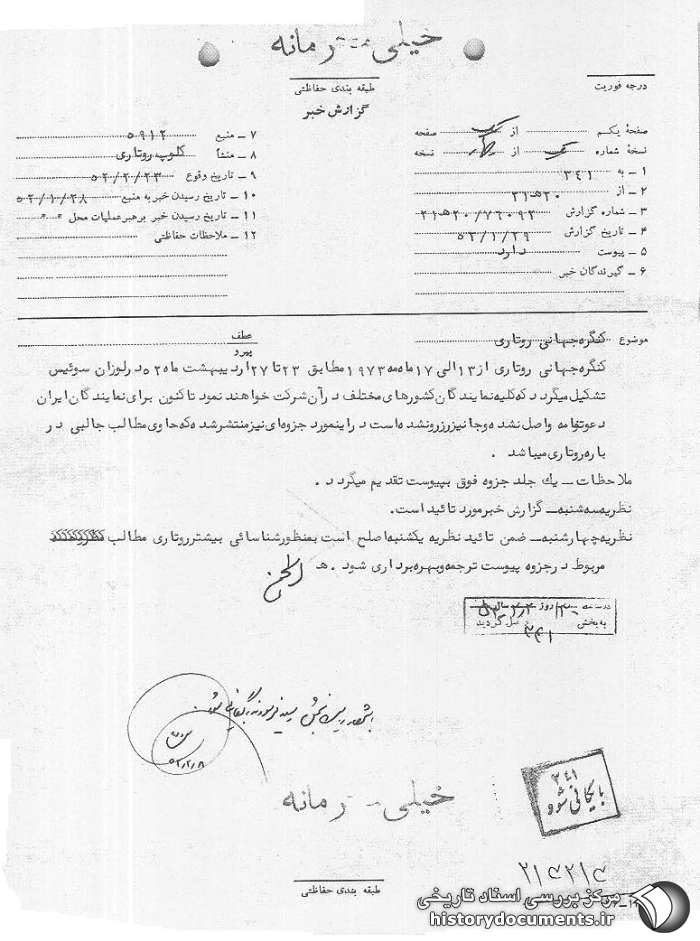 خیلی محرمانه
طبقه بندی حفاظتی
گزارش خبر
درجه فوریت
صفحهٔ یکم از یک صفحه
نسخهٔ شماره یک از چهار نسخه
۱ ـ به ۳۴۱
۲ ـ از ۲۰هـ۲۱
۳ ـ شماره گزارش ۲۰/۷۶۰۹۲هـ۲۱
۴ ـ تاریخ گزارش ۵۲/۱/۲۹
۵ ـ پیوست دارد
۶ ـ گیرندگان خبر
۷ ـ منبع ۵۹۱۲
۸ ـ منشأ کلوپ روتاری
۹ ـ تاریخ وقوع ۵۲/۲/۲۳
۱۰ ـ تاریخ رسیدن خبر به منبع ۵۲/۱/۲۸
۱۱ ـ تاریخ رسیدن خبر برهبر عملیات محل " "
۱۲ ـ ملاحظات حفاظتی
موضوع کنگره جهانی روتاری
عطف
پیرو
کنگره جهانی روتاری از ۱۳ الی ۱۷ ماه مه ۱۹۷۳ مطابق ۲۳ تا ۲۷ اردیبهشت ماه ۵۲ در لوزان سوئیس
تشکیل میگردد که کلیه نمایندگان کشورهای مختلف در آن شرکت خواهند نمود تاکنون برای نمایندگان ایران
دعوتنامه واصل نشده و جا نیز رزرو نشده است در اینمورد جزوه ای نیز منتشر شده که حاوی مطالب جالبی در
باره روتاری میباشد .
ملاحظات ـ یک جلد جزوه فوق بپیوست تقدیم میگردد .
نظریه سه شنبه ـ گزارش خبر مورد تائید است.
نظریه چهارشنبه ـ ضمن تائید نظریه یکشنبه اصلح است بمنظور شناسائی بیشتر روتاری مطالب
مربوط در جزوه پیوست ترجمه و بهره برداری شود . هـ
روز سال
به بخش ۳۴۱ گردید
۵۲/۲/۸
خیلی محرمانه
۳۴۱
بایگانی شود
طبقه بندی حفاظتی
مرکز بررسی اسناد تاریخی
historydocuments.ir